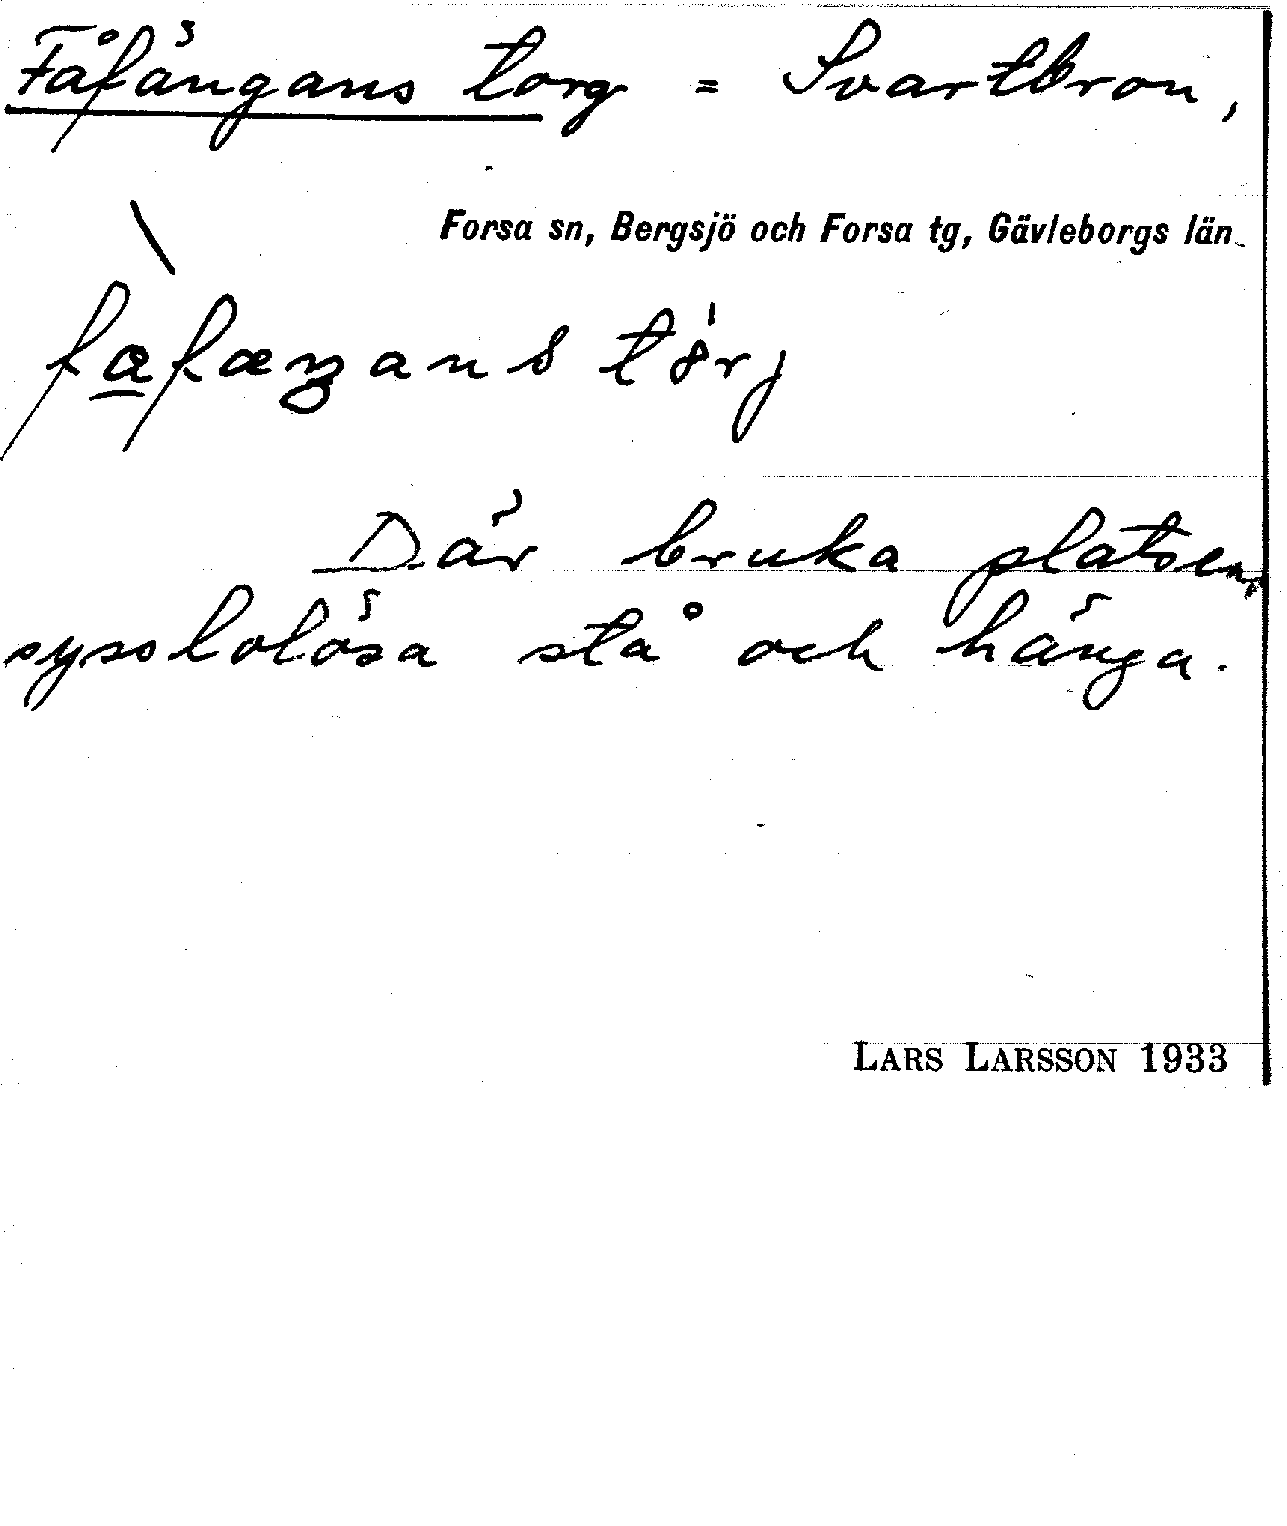 Fåfängans torg = Svartbron,
Forsa sn, Bergsjö och Forsa tg, Gävleborgs län
Där bruka platsens
sysslolösa stå och hänga.
LARS LARSSON 1933